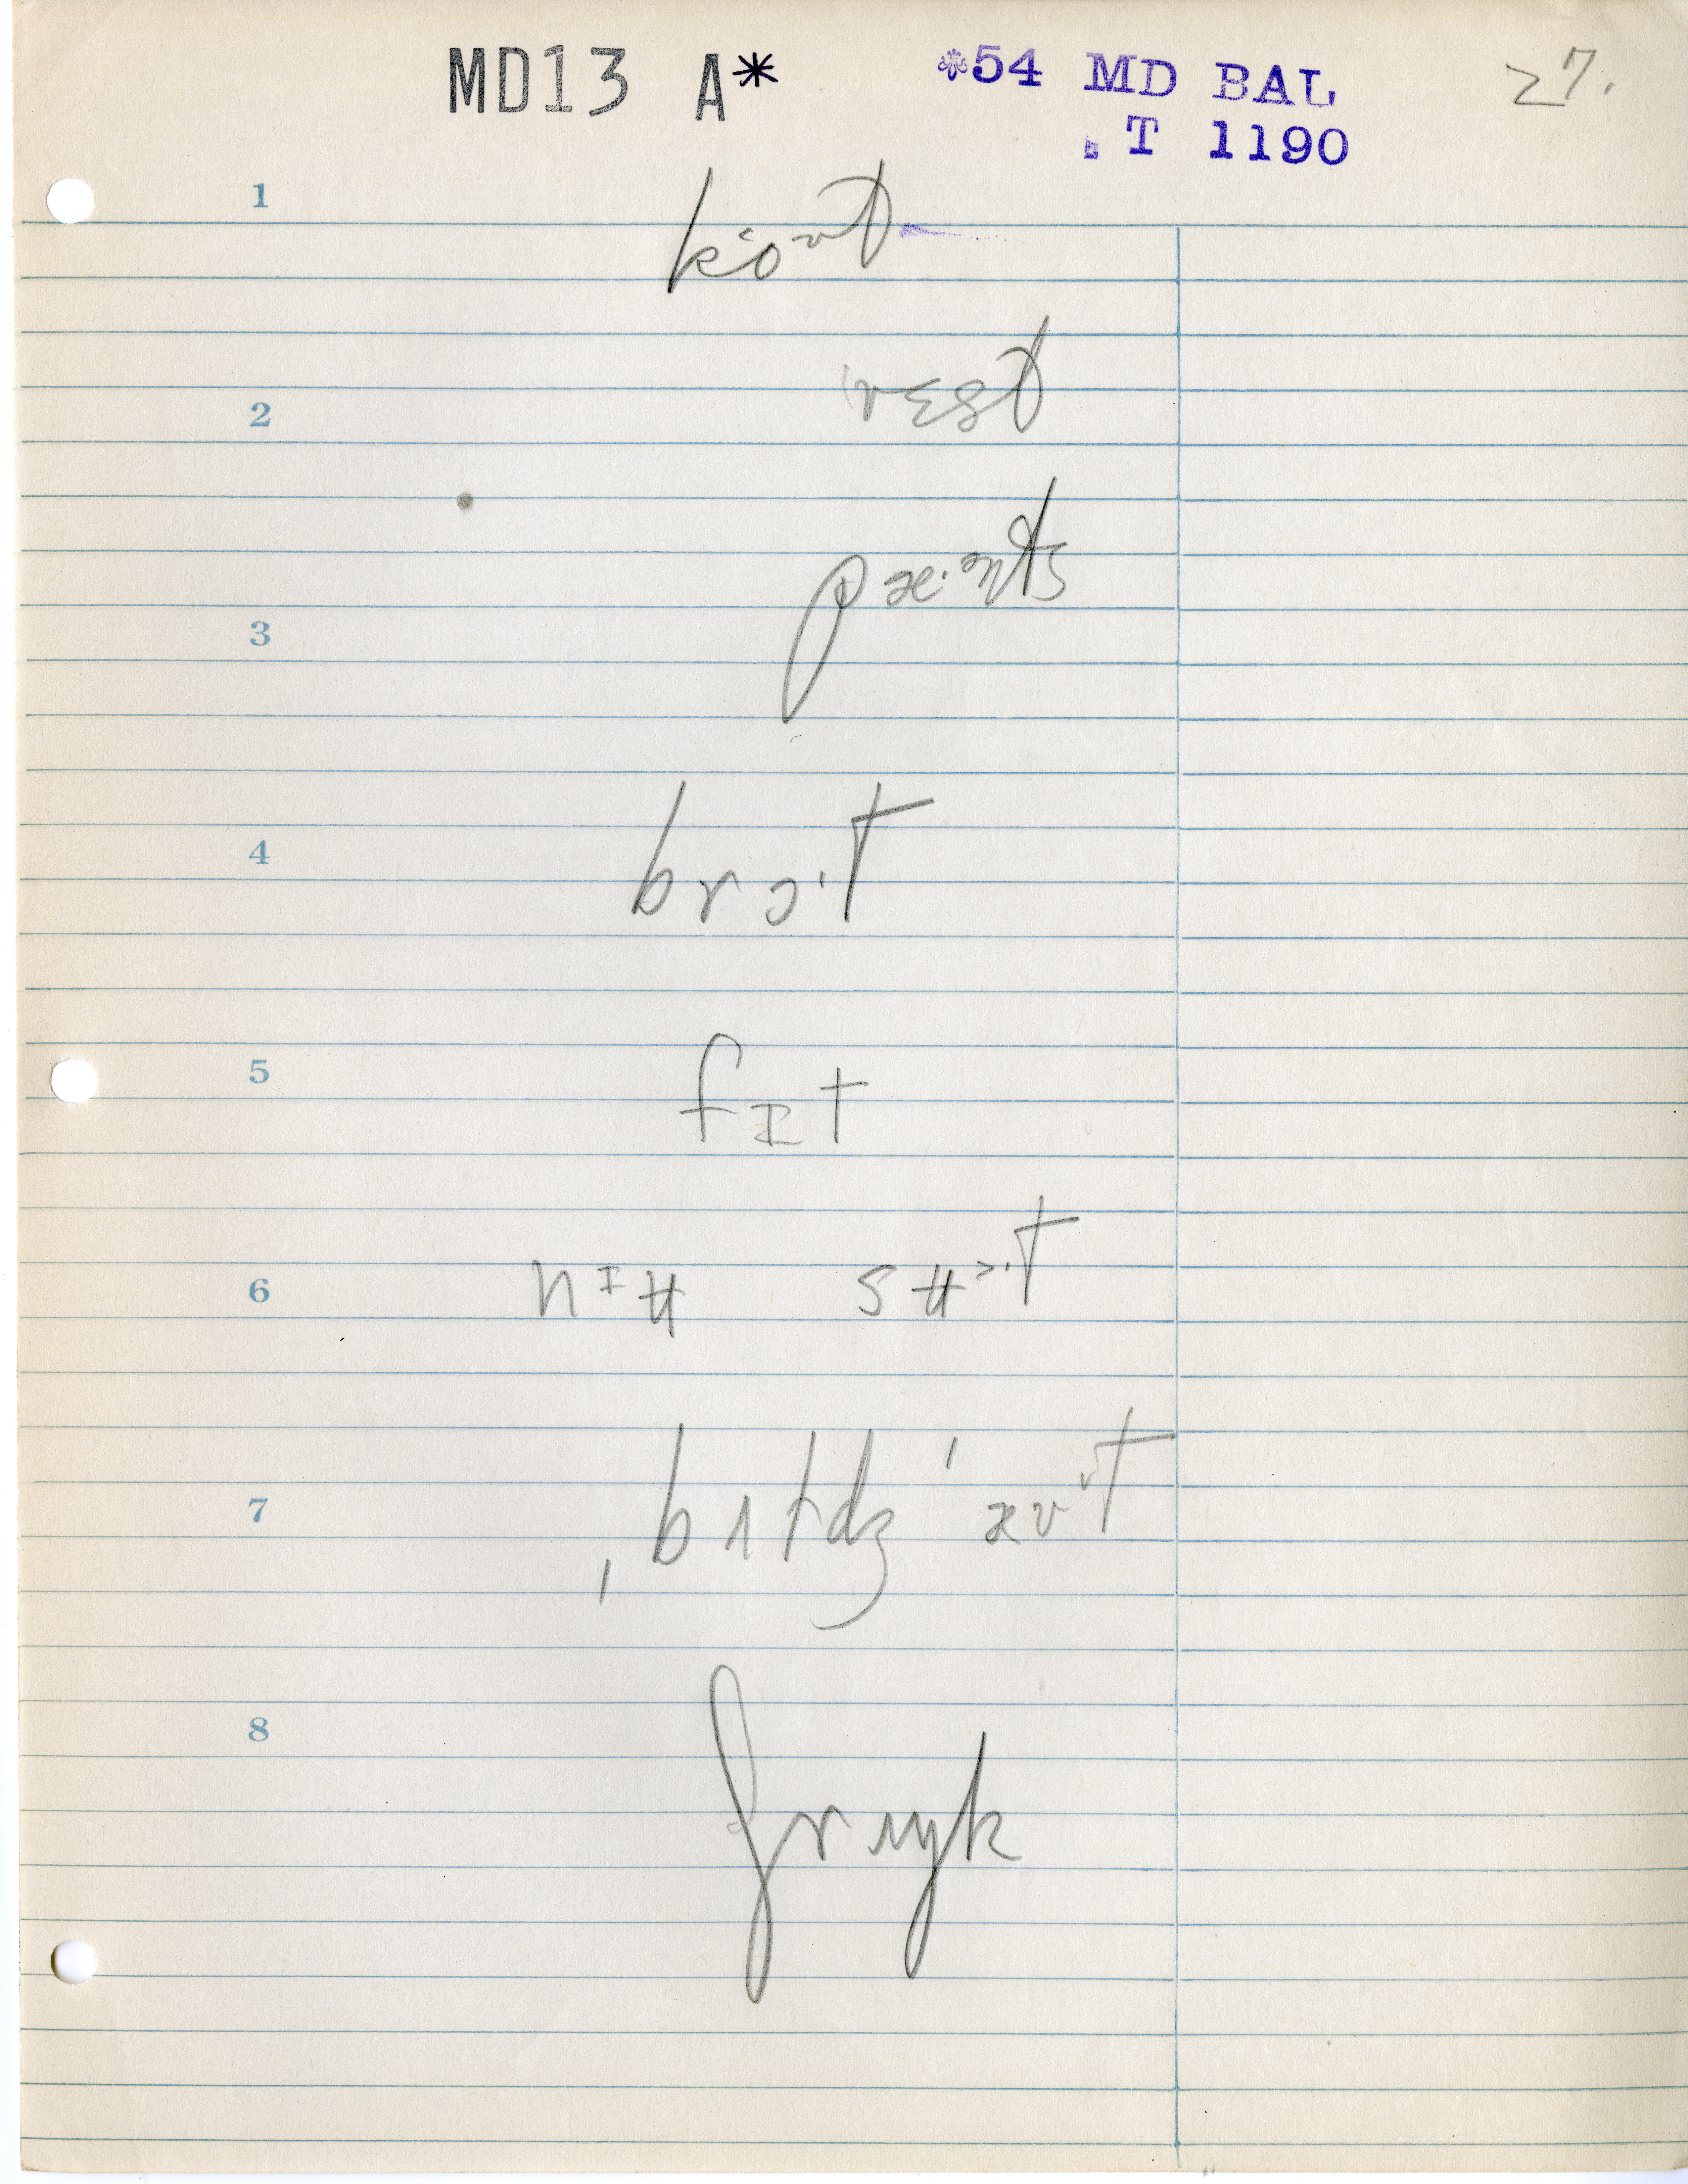 MD13 A* *54 MD BAL 27.
T 1190
1 kʻoᶷt
2 vɛst
3 pæ·nts
4 brɔ·t
5 fɪt
6 nɪʉ sʉ^·t
7 ˌbɪtdʒ ˈæᴠʼt
8 ʃrʌŋk